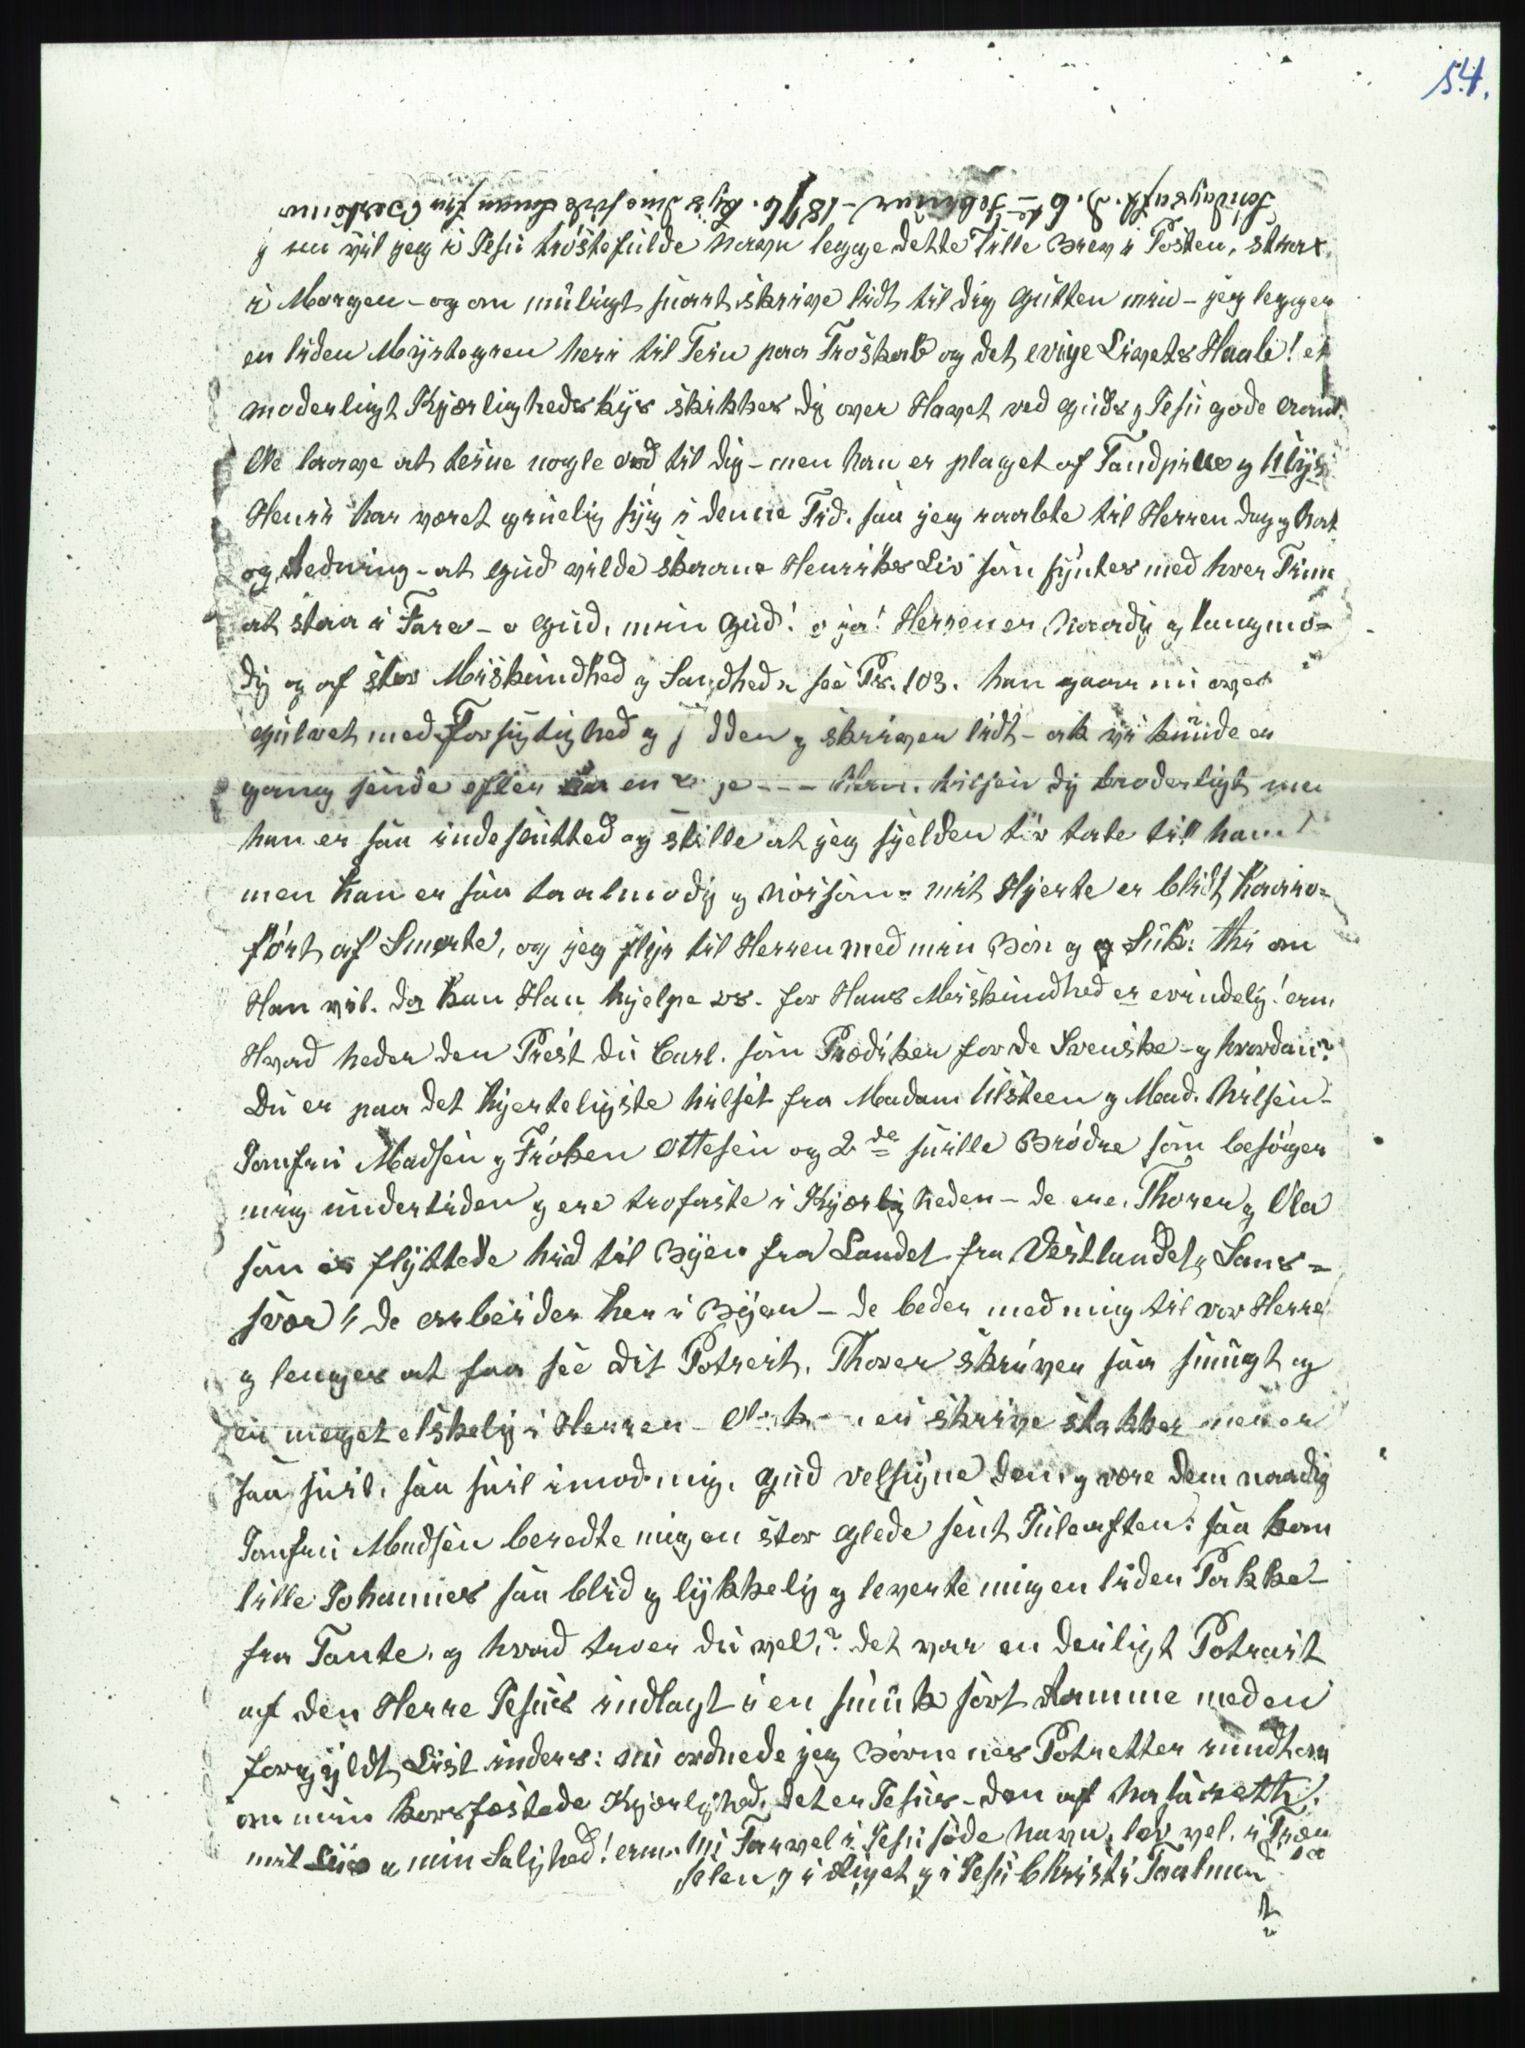 54.
Søndagsaft. d. 6te Februar - 1876.
y nu vil jeg i Jesu trøstefulde navn legge dette lille Brev i Posten, strax
i Morgen - og om muligt snart skrive lidt til dig Gutten min - jeg legger
en liden Myrtegren heri til Tein paa Troskab og det evige Livets Haab! et
moderligt Kjærlighedskys skikkes dig over Havet ved Guds y Jesu gode Aand.
Ole lavve at teine nogle ord til dig - men han er plaget af Tandpine y
Henrik har været gruelig syg i denne Tid. saa jeg raabte til Herren dag y Nat
og Redning - at Gud vilde skaane Henriks Liv som syntes med hver Time
at staa i Fare - o Gud, min Gud! o ja! Herren er Naadig y langmo=
dig og af stor Miskundhed y Sandhed see Ps. 103. han gaar nu over
gulvet med Forsigtighed y dden y skriver lidt - ak vi kunde en
gang sende efter en - - - tilsen dig broderligt men
han er saa indeslutted og stille at jeg sjelden tør tale til ham
men han er saa taalmodig y Nøisom - mit Hjerte er blidt
ført af Smerte, og jeg flyr til Herren med min Bøn og Suk: thi om
Han vil. da kan Han hjelpe os. for Hans Miskundhed er evindelig!
Hvad heder den Prest du Carl. som Prædiker for de Svenske - y hvordan?
Du er paa det Hjerteligste hilset fra Madam Ulsteen y Mad. Nilsen -
Jomfru Madsen y Frøken Ottesen og 2de snille Brødre som besøger
mig undertiden y ere trofaste i Kjærligheden - de ere. Thorer y Ola
som flyttede hid til Byen fra Landet fra Vestlandet, Sans=
svær " de arbeider her i Byen - de beder med mig til vor Herre
y lenges at faa see dit Potreit. Thorer skriver saa smugt og
en meget elskelig i Herren - en skrive stakker men er
saa snil, saa snil imod mig. Gud velsigne dem y være dem naadig
Jomfru Madsen beredte mig en stor Glede sent Juleaften: saa kom
lille Johannes saa blid y lykkelig y leverte mig en liden Pakke -
fra Tante. y hvad troer du vel? det var en deiligt Potrait
af den Herre Jesus indlagt i en smuk sort Ramme med en
forgyldt List inders: nu ordnede jeg Børnenes Potretter rundt om
om min korsfæstede Kjærlighed, det er Jesus - den af Nasareth,
mit Liv y min Salighed! Farvel i Jesu søde navn, lev vel. i Træn
selen y i Riget y i Jesu Christi Taalmod